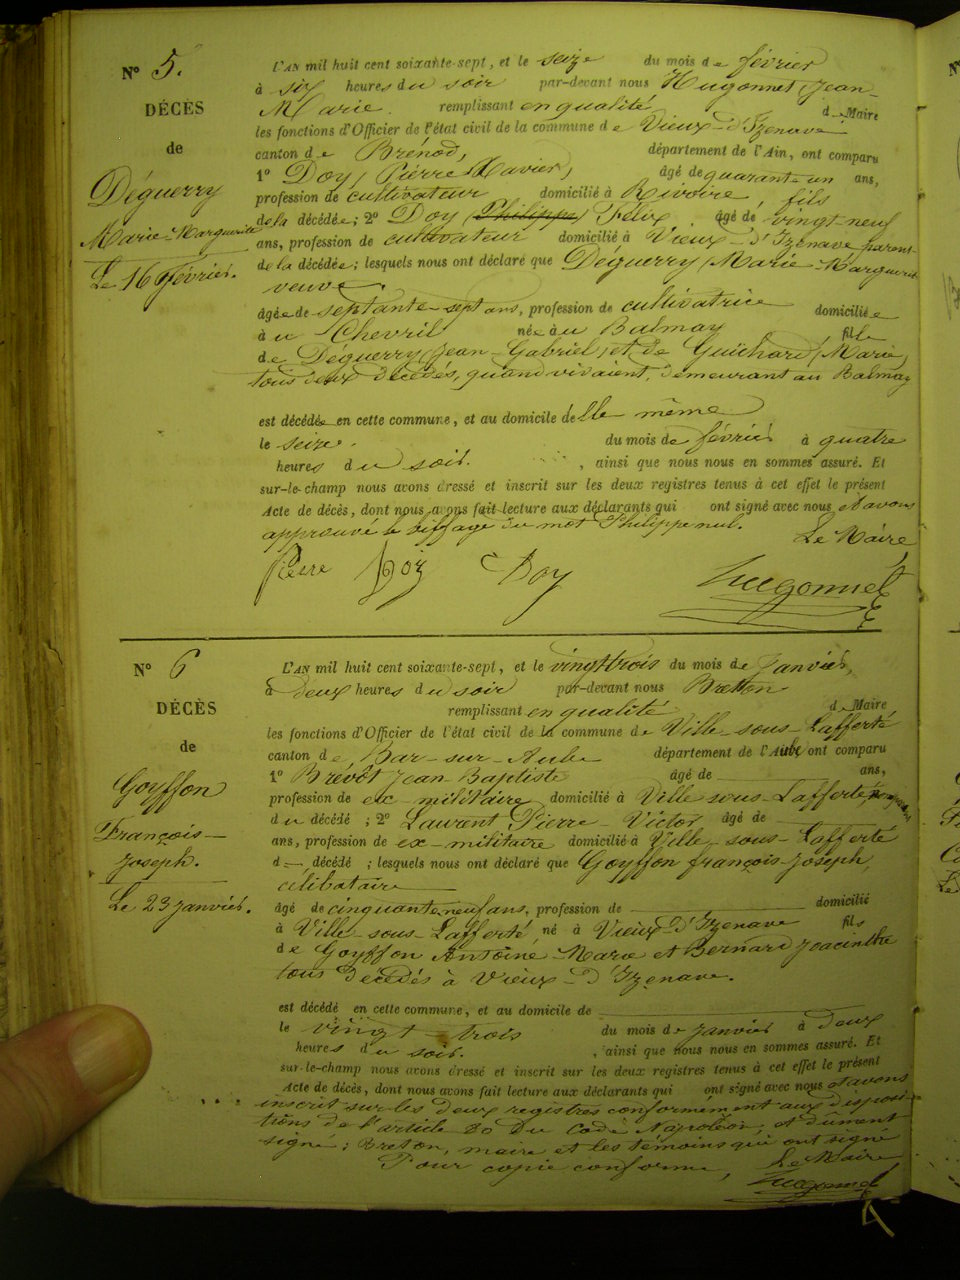 N° 5.
DÉCÈS
de
Déguerry
Marie-Marguerite
Le 16 février.
L'AN mil huit cent soixante-sept, et le seize du mois de février
à six heures du soir par-devant nous Hugonnet, Jean-
Marie remplissant en qualité de Maire
les fonctions d'Officier de l'état civil de la commune de Vieux-d'Izenave
canton de Brénod, département de l'Ain, ont comparu
1° Doy, Pierre Xavier, âgé de quarante un ans,
profession de cultivateur domicilié à Rivoire, fils
de la décédée; 2° Doy (Philippe) Félix âgé de vingt-neuf
ans, profession de cultivateur domicilié à Vieux-d'Izenave parent
de la décédée; lesquels nous ont déclaré que Déguerry, Marie-Marguerite
veuve
âgée de septante-sept ans, profession de cultivatrice domiciliée
à u Chevril née à u Balmay fille
de Déguerry, Jean-Gabriel, et de Guichard, Marie,
tous deux décédés, quand vivaient, demeurant au Balmay
est décédée en cette commune, et au domicile d'elle même
le seize. du mois de février à quatre
heures du soir. , ainsi que nous nous en sommes assuré. Et
sur-le-champ nous avons dressé et inscrit sur les deux registres tenus à cet effet le présent
Acte de décès, dont nous avons fait lecture aux déclarants qui ont signé avec nous et avons
approuvé le biffage du mot Philippe nul. Le Maire
Pierre Doy Doy Hugonnet
N° 6
DÉCÈS
de
Goyffon
François-
Joseph.
Le 23 janvier.
L'AN mil huit cent soixante-sept, et le vingt trois du mois de Janvier,
à deux heures du soir par-devant nous Bretton
remplissant en qualité de Maire
les fonctions d'Officier de l'état civil de la commune de Ville-sous-Lafferté
canton de Bar-sur-Aube département de l'Aube ont comparu
1° Brévôt Jean Baptiste âgé de ans,
profession de ex-militaire domicilié à Ville sous-Lafferté
du décédé ; 2° Laurent Pierre-Victor âgé de
ans, profession de ex-militaire domicilié à Ville-sous-Lafferté
d décédé ; lesquels nous ont déclaré que Goyffon françois-Joseph,
célibataire
âgé de cinquante neuf ans, profession de domicilié
à Ville-sous-Lafferté, né à Vieux-d'Izenave fils
de Goyffon Antoine-Marie et Bernard Joacinthe
tous décédés à Vieux-d'Izenave.
est décédé en cette commune, et au domicile de
le vingt-trois du mois de janvier à deux
heures du soir. , ainsi que nous nous en sommes assuré. Et
sur-le-champ nous avons dressé et inscrit sur les deux registres tenus à cet effet le présent
Acte de décès, dont nous avons fait lecture aux déclarants qui ont signé avec nous et avons
inscrit sur les deux registres conformément aux disposi-
tions de l'article 80 du Code Napoléon, et dûment
signé ; Breton, maire et les témoins qui ont signé
Pour copie conforme, Le Maire
Hugonnet